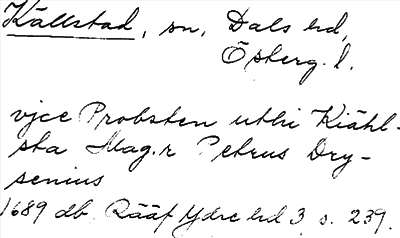 Källstad, sn, Dals hd,
Österg. l.
vice Probsten uthi Kiähl-
sta Mag.r Petrus Dry-
senius
1689 db. Rääf Ydre hd 3 s. 239.